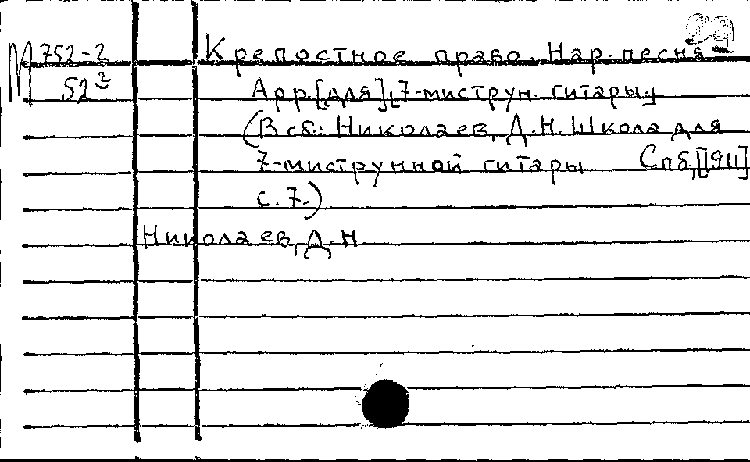 29
М 752-2
52²
Крепостное право. Нар. песня
Арр. [для] 7-миструн. гитары.
(В сб.: Николаев, Д.Н. Школа для
7-миструнной гитары Спб, [1911]
с. 7.)
Николаев, Д.Н.